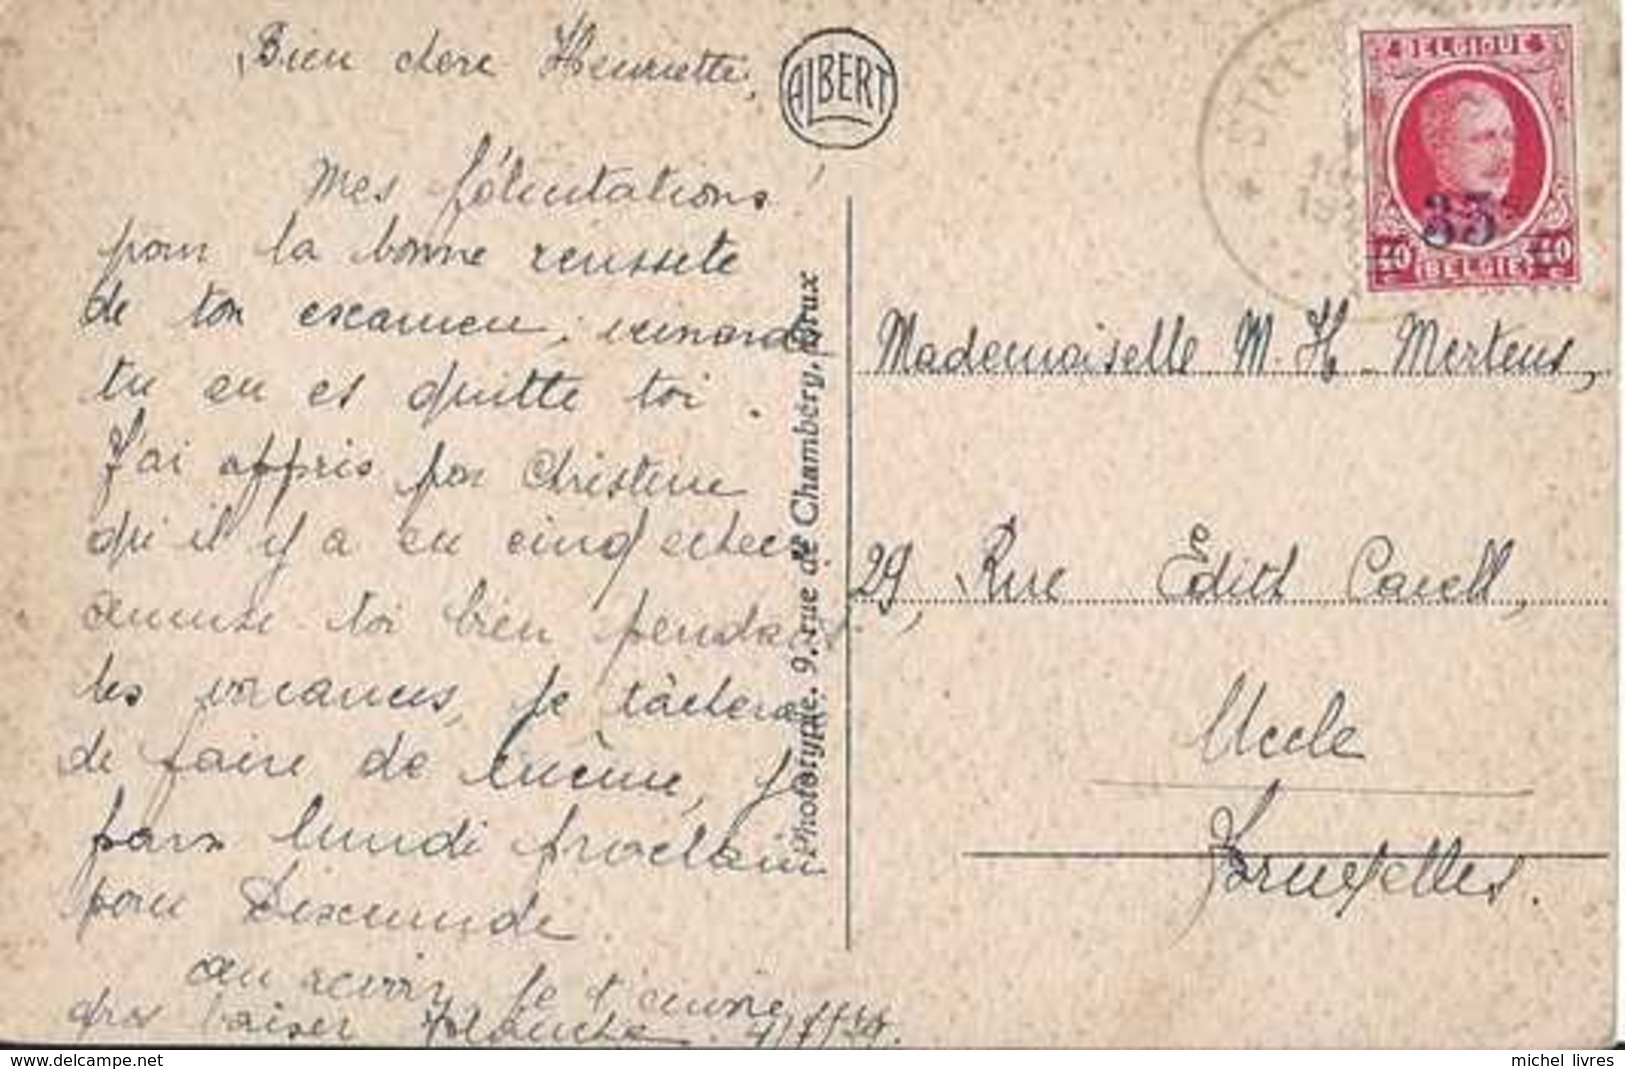 Bien chere Henriette,
ALBERT
mes félicitations!
pour la bonne reussete
de ton escamen,
tu en es quitte toi.
J'ai appris par Christine
qu'il y a eu cinq echecs
amuse-toi bien pendant
les vacances, je tâcherai
de faire de même, je
pars lundi prochain
pour Dixmunde.
au revoir je t'envoie
gros baiser Blanche.
Phototypie. 9, rue de Chambéry, Brux
BELGIQUE
35c
40 (BELGIË) 40
Mademoiselle M. H. Mertens,
29, Rue Edith Cavell,
Uccle
Bruxelles.
delcampe.net
michel_livres